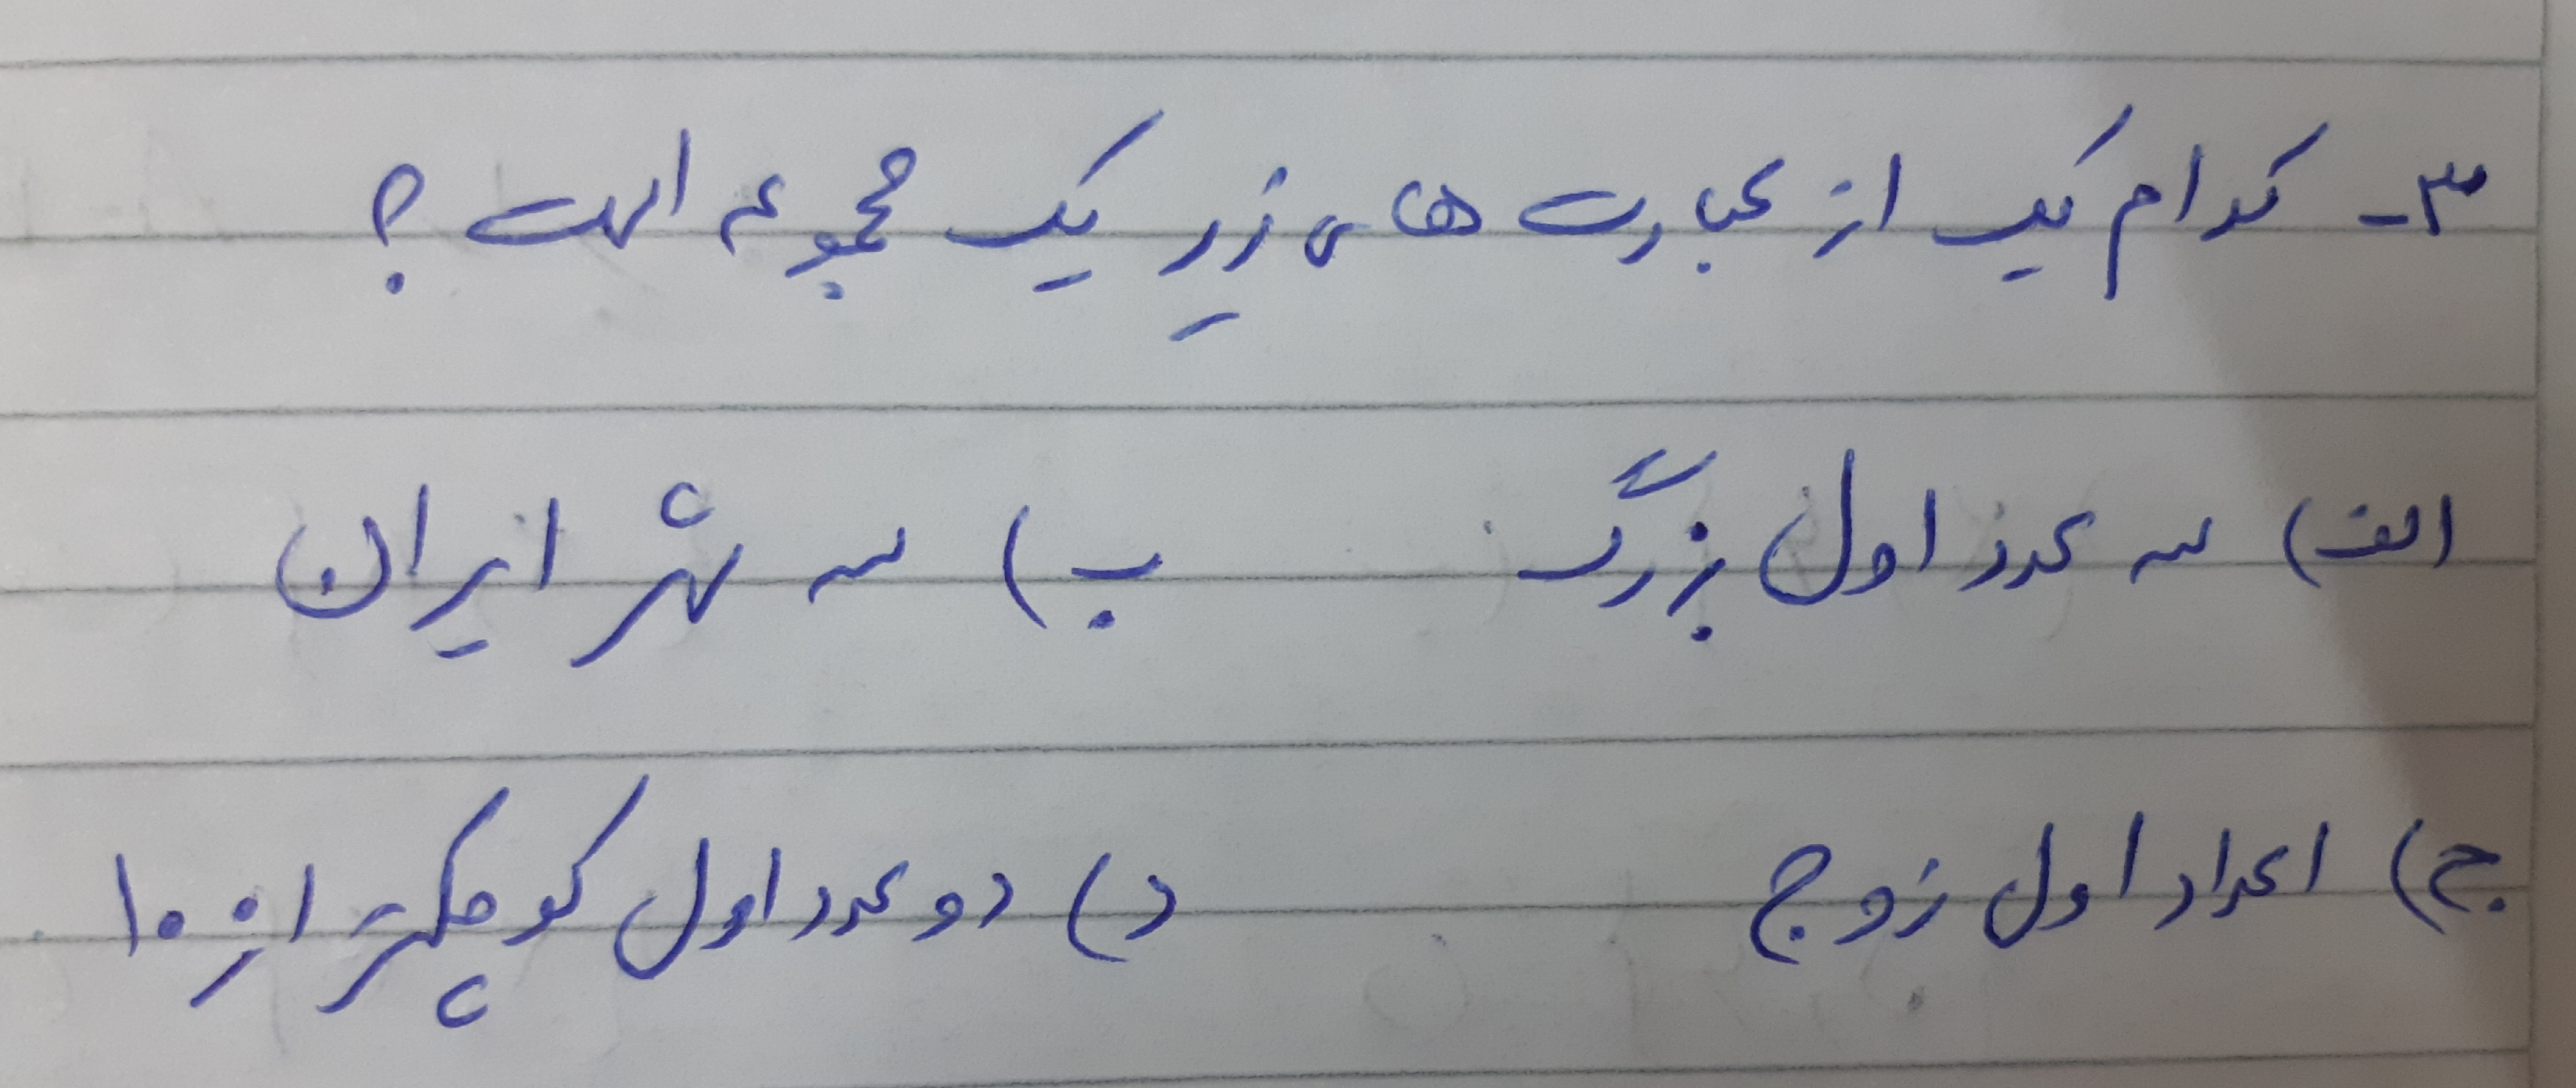 ۳- کدام یک از عبارت های زیر یک مجموعه است ؟
الف) سه عدد اول بزرگ ب) سه شهر ایران
ج) اعداد اول زوج د) دو عدد اول کوچکتر از ۱۰